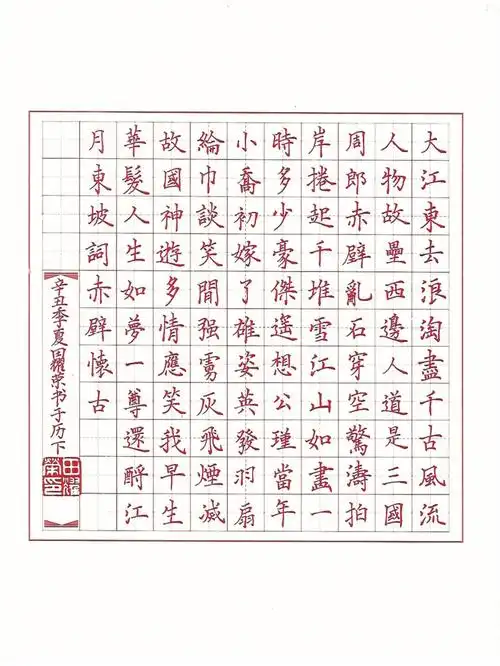 大江東去浪淘盡千古風流
人物故壘西邊人道是三國
周郎赤壁亂石穿空驚濤拍
岸捲起千堆雪江山如畫一
時多少豪傑遥想公瑾當年
小喬初嫁了雄姿英發羽扇
綸巾談笑間强虜灰飛煙滅
故國神遊多情應笑我早生
華髮人生如夢一尊還酹江
月東坡詞赤壁懷古
辛丑季夏田耀荣书于历下
田耀荣印